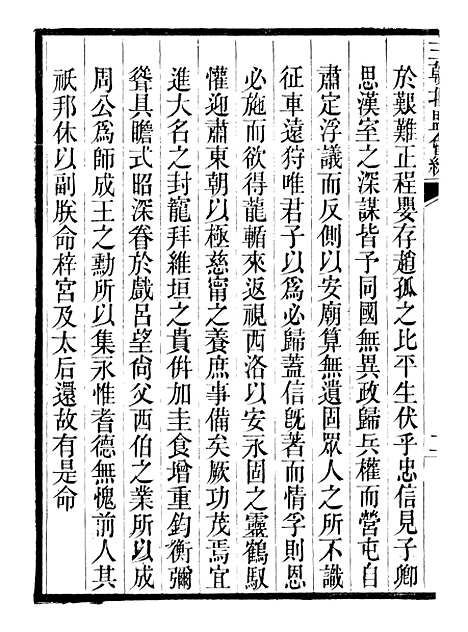 三朝北盟會編
於艱難正程嬰存趙孤之比平生伏乎忠信見子卿
思漢室之深謀皆予同國無異政歸兵權而營屯自
肅定浮議而反側以安廟算無遺固眾人之所不識
征車遠狩唯君子以為必歸蓋信旣著而情孚則恩
必施而欲得龍輴來返視西洛以安永固之靈鶴馭
懽迎肅東朝以極慈甯之養庶事備矣厥功茂焉宜
進大名之封龍拜維垣之貴併加圭食增重鈞衡彌
聳具瞻式昭深眷於戲呂望尙父西伯之業所以成
周公為師成王之勳所以集永惟耆德無愧前人其
祇邦休以副朕命梓宮及太后還故有是命